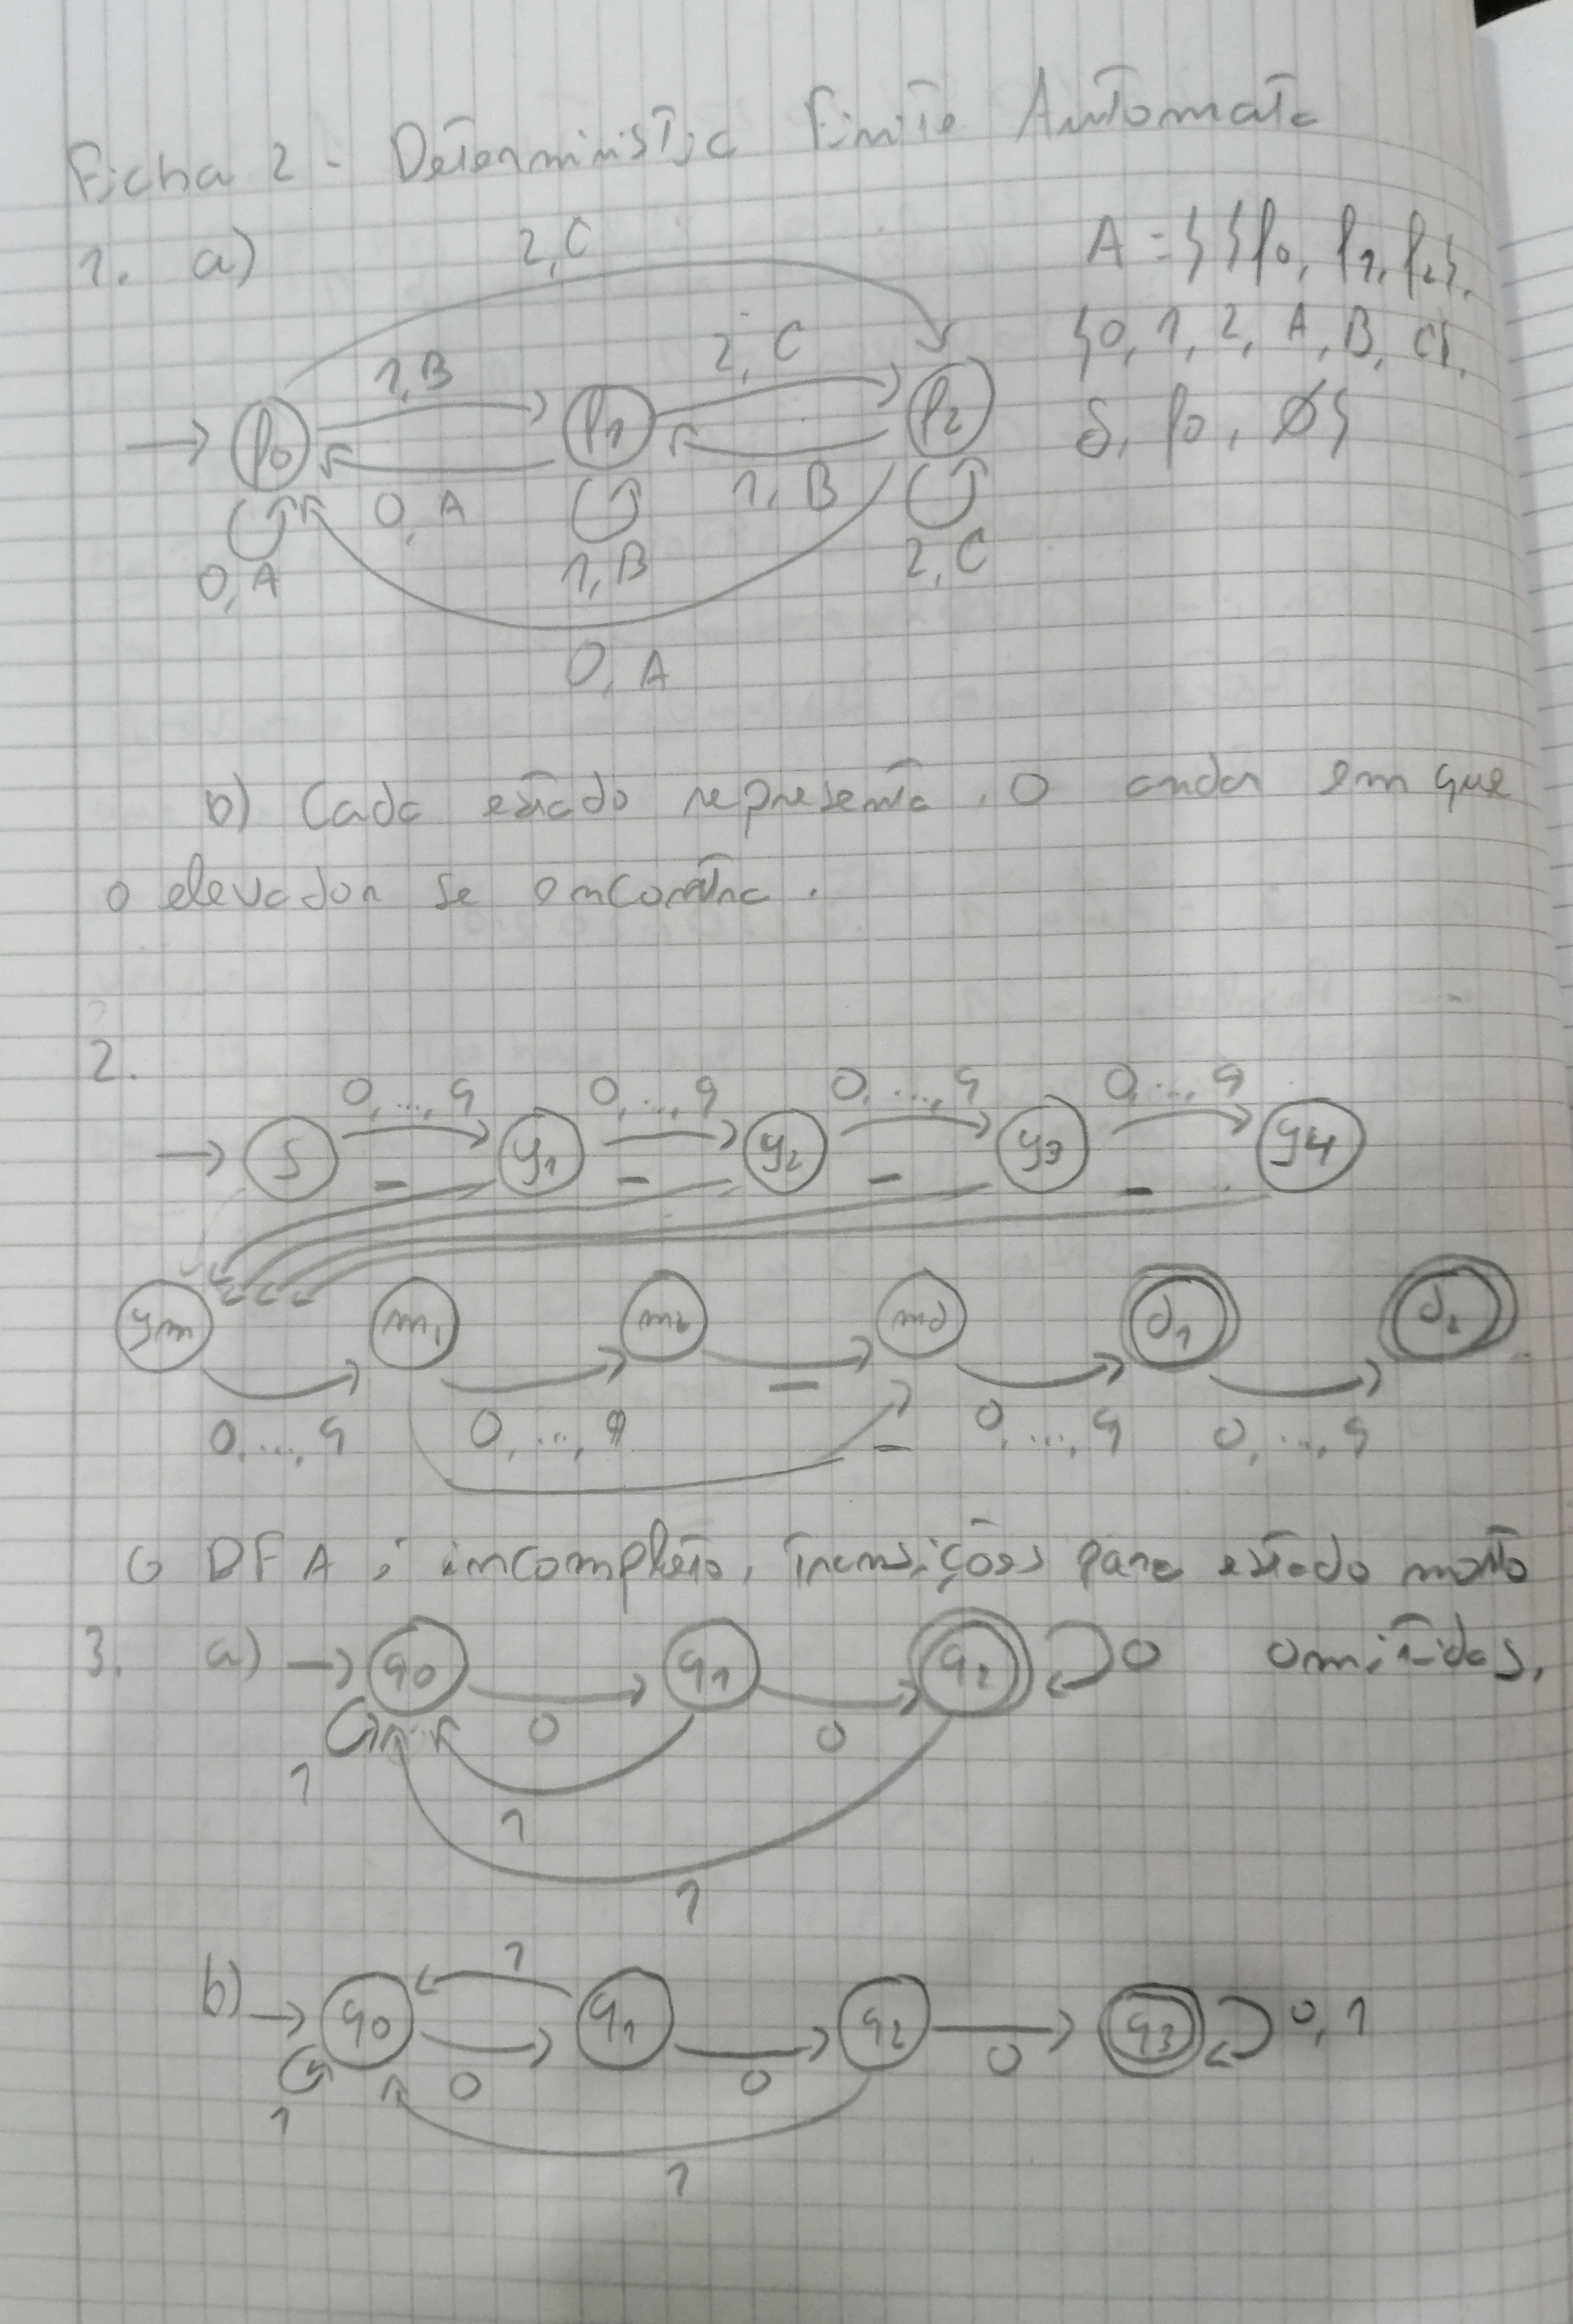 Ficha 2 - Deterministic Finite Automata
1. a)
2, C
A = {{f0, f1, f2},
1, B
2, C
{0, 1, 2, A, B, C},
f0
f1
f2
δ, f0, Ø}
0, A
1, B
0, A
1, B
2, C
0, A
b) Cada estado representa o andar em que
o elevador se encontra.
2.
0, ..., 9
0, ..., 9
0, ..., 9
0, ..., 9
S
y1
y2
y3
y4
-
-
-
-
ym
m1
m2
md
d1
d2
-
0, ..., 9
0, ..., 9
-
0, ..., 9
0, ..., 9
O DFA é incompleto, transições para estado morto
3. a)
q0
q1
q2
0
omitidas.
0
0
1
1
1
b)
1
q0
q1
q2
q3
0, 1
0
0
0
1
1